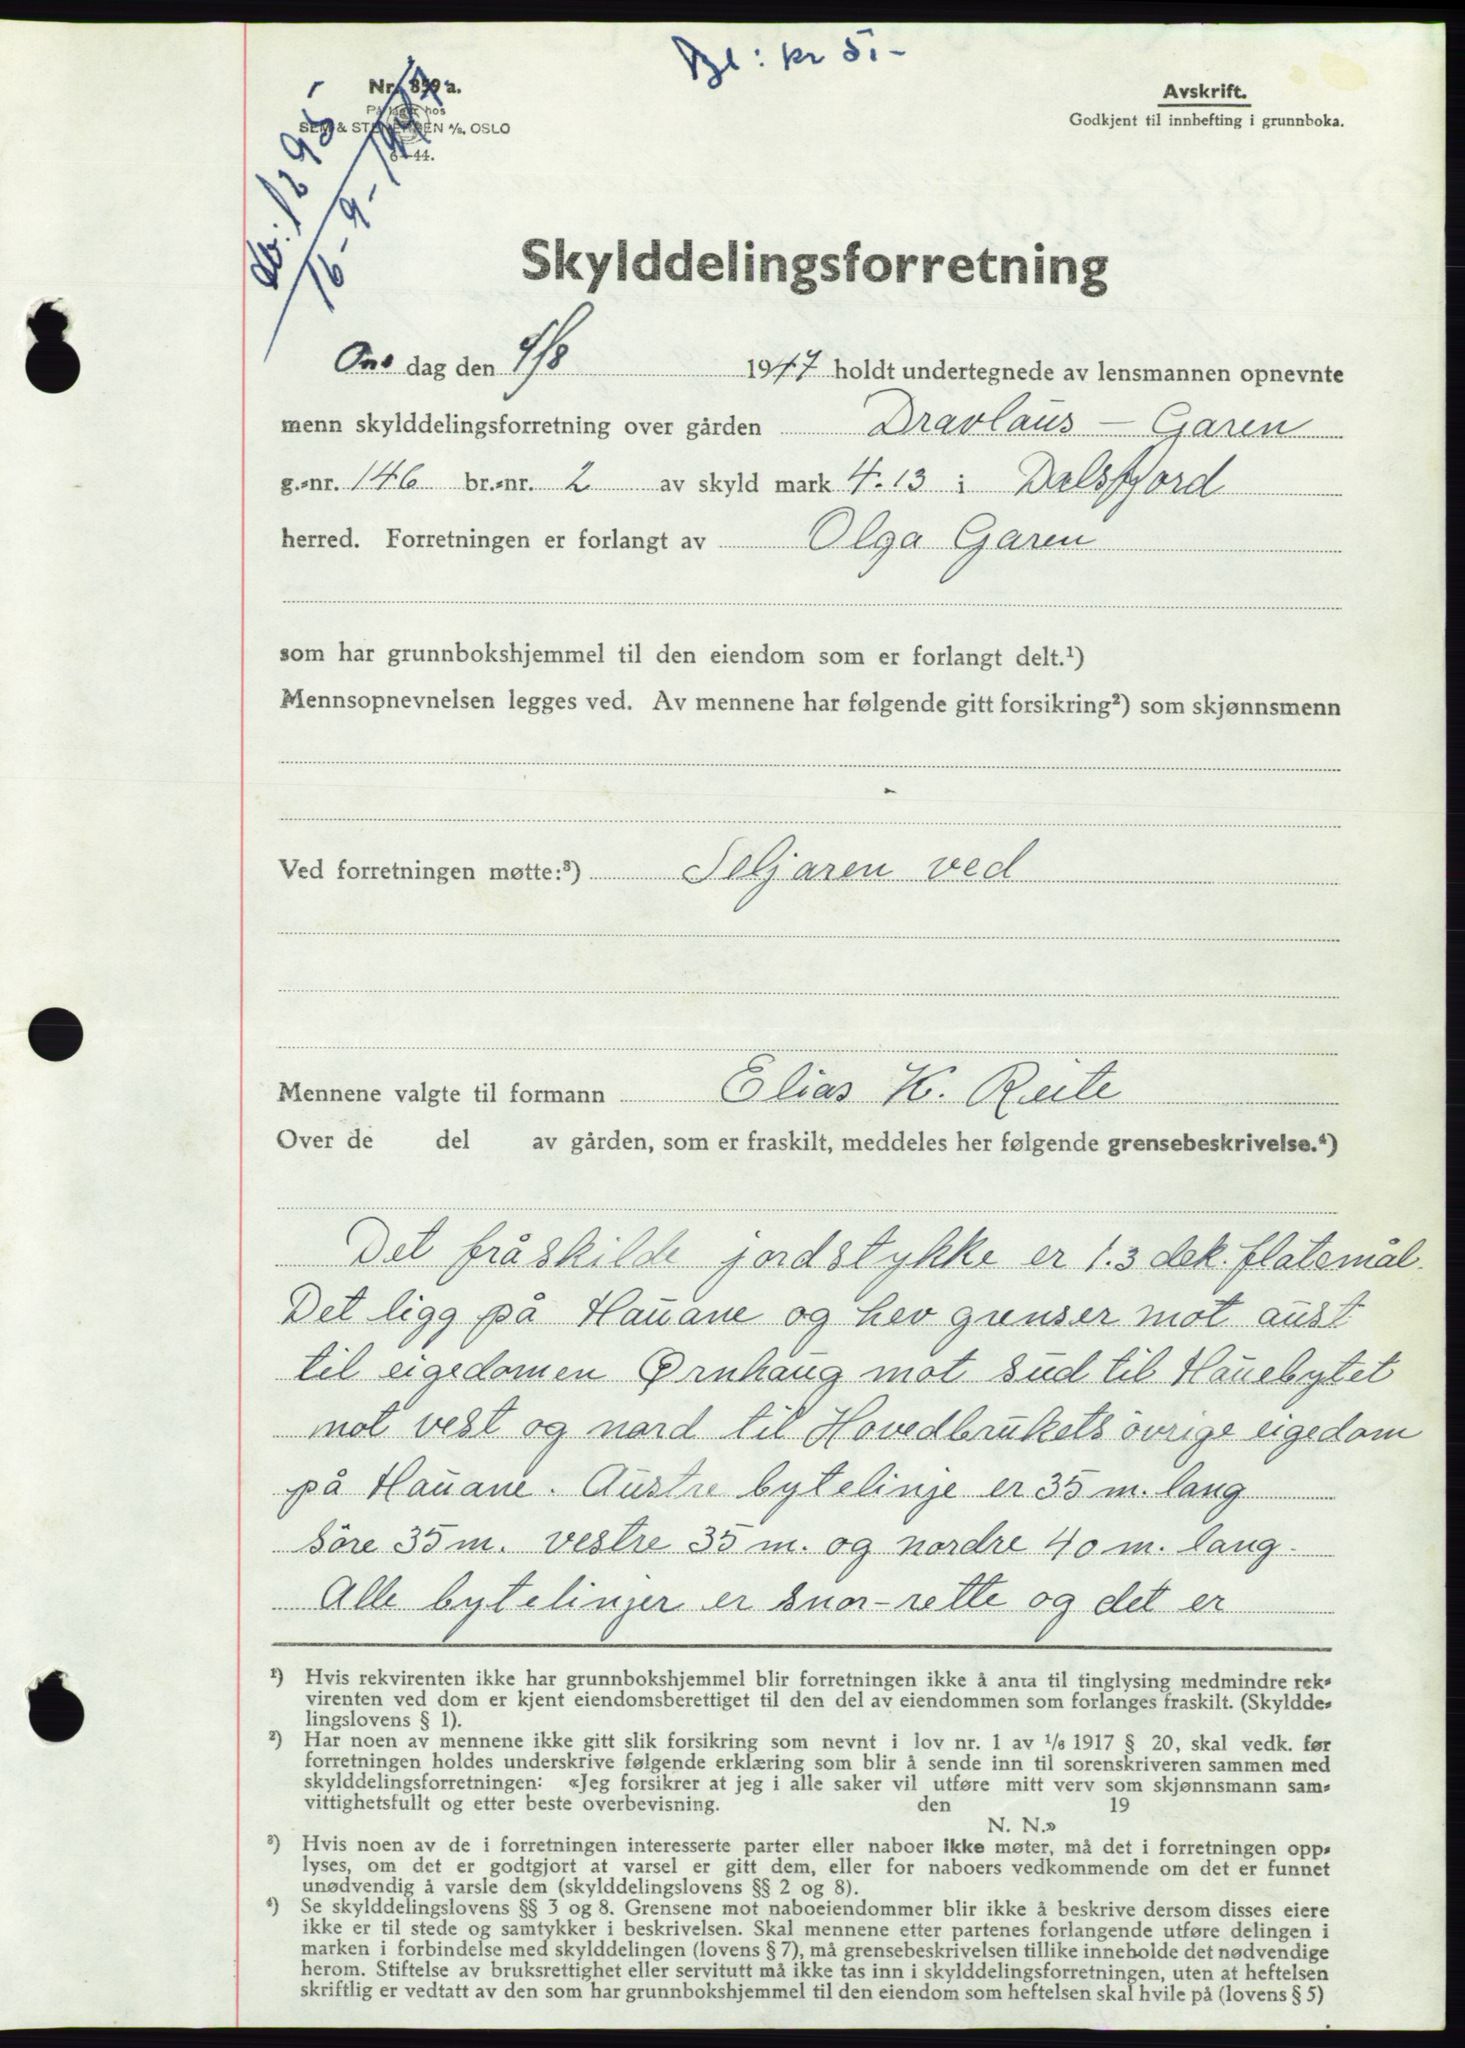 Bl: kr 5,-
Nr. 859 a.
På lager hos
SEM & STENERSEN A/S, OSLO
6-44.
Avskrift.
Godkjent til innhefting i grunnboka.
db: 1295
16-9-1947
Skylddelingsforretning
Ons dag den 1947 holdt undertegnede av lensmannen opnevnte
menn skylddelingsforretning over gården Dravlaus - Garen
g.-nr. 146 br.-nr. 2 av skyld mark 4.13 i Dalsfjord
herred. Forretningen er forlangt av Olga Garen
som har grunnbokshjemmel til den eiendom som er forlangt delt.¹)
Mennsopnevnelsen legges ved. Av mennene har følgende gitt forsikring²) som skjønnsmenn
Ved forretningen møtte:³) Seljaren ved
Mennene valgte til formann Elias K. Reite
Over de del av gården, som er fraskilt, meddeles her følgende grensebeskrivelse.⁴)
Det fråskilde jordstykke er 1.3 dek. flatemål.
Det ligg på Hauane og hev grenser mot aust
til eigedomen Ørnhaug mot sud til Hauebytet
mot vest og nord til Hovedbrukets övrige eigedom
på Hauane. Austre bytelinje er 35 m. lang
söre 35 m. vestre 35 m. og nordre 40 m. lang.
Alle bytelinjer er snor-rette og det er
¹) Hvis rekvirenten ikke har grunnbokshjemmel blir forretningen ikke å anta til tinglysing medmindre rek-
virenten ved dom er kjent eiendomsberettiget til den del av eiendommen som forlanges fraskilt. (Skyldde-
lingslovens § 1).
²) Har noen av mennene ikke gitt slik forsikring som nevnt i lov nr. 1 av 1/6 1917 § 20, skal vedk. før
forretningen holdes underskrive følgende erklæring som blir å sende inn til sorenskriveren sammen med
skylddelingsforretningen: «Jeg forsikrer at jeg i alle saker vil utføre mitt verv som skjønnsmann sam-
vittighetsfullt og etter beste overbevisning. den 19
N. N.»
³) Hvis noen av de i forretningen interesserte parter eller naboer ikke møter, må det i forretningen opp-
lyses, om det er godtgjort at varsel er gitt dem, eller for naboers vedkommende om det er funnet
unødvendig å varsle dem (skylddelingslovens §§ 2 og 8).
⁴) Se skylddelingslovens §§ 3 og 8. Grensene mot naboeiendommer blir ikke å beskrive dersom disses eiere
ikke er til stede og samtykker i beskrivelsen. Skal mennene etter partenes forlangende utføre delingen i
marken i forbindelse med skylddelingen (lovens § 7), må grensebeskrivelsen tillike inneholde det nødvendige
herom. Stiftelse av bruksrettighet eller servitutt må ikke tas inn i skylddelingsforretningen, uten at heftelsen
skriftlig er vedtatt av den som har grunnbokshjemmel til den eiendom som heftelsen skal hvile på (lovens § 5)